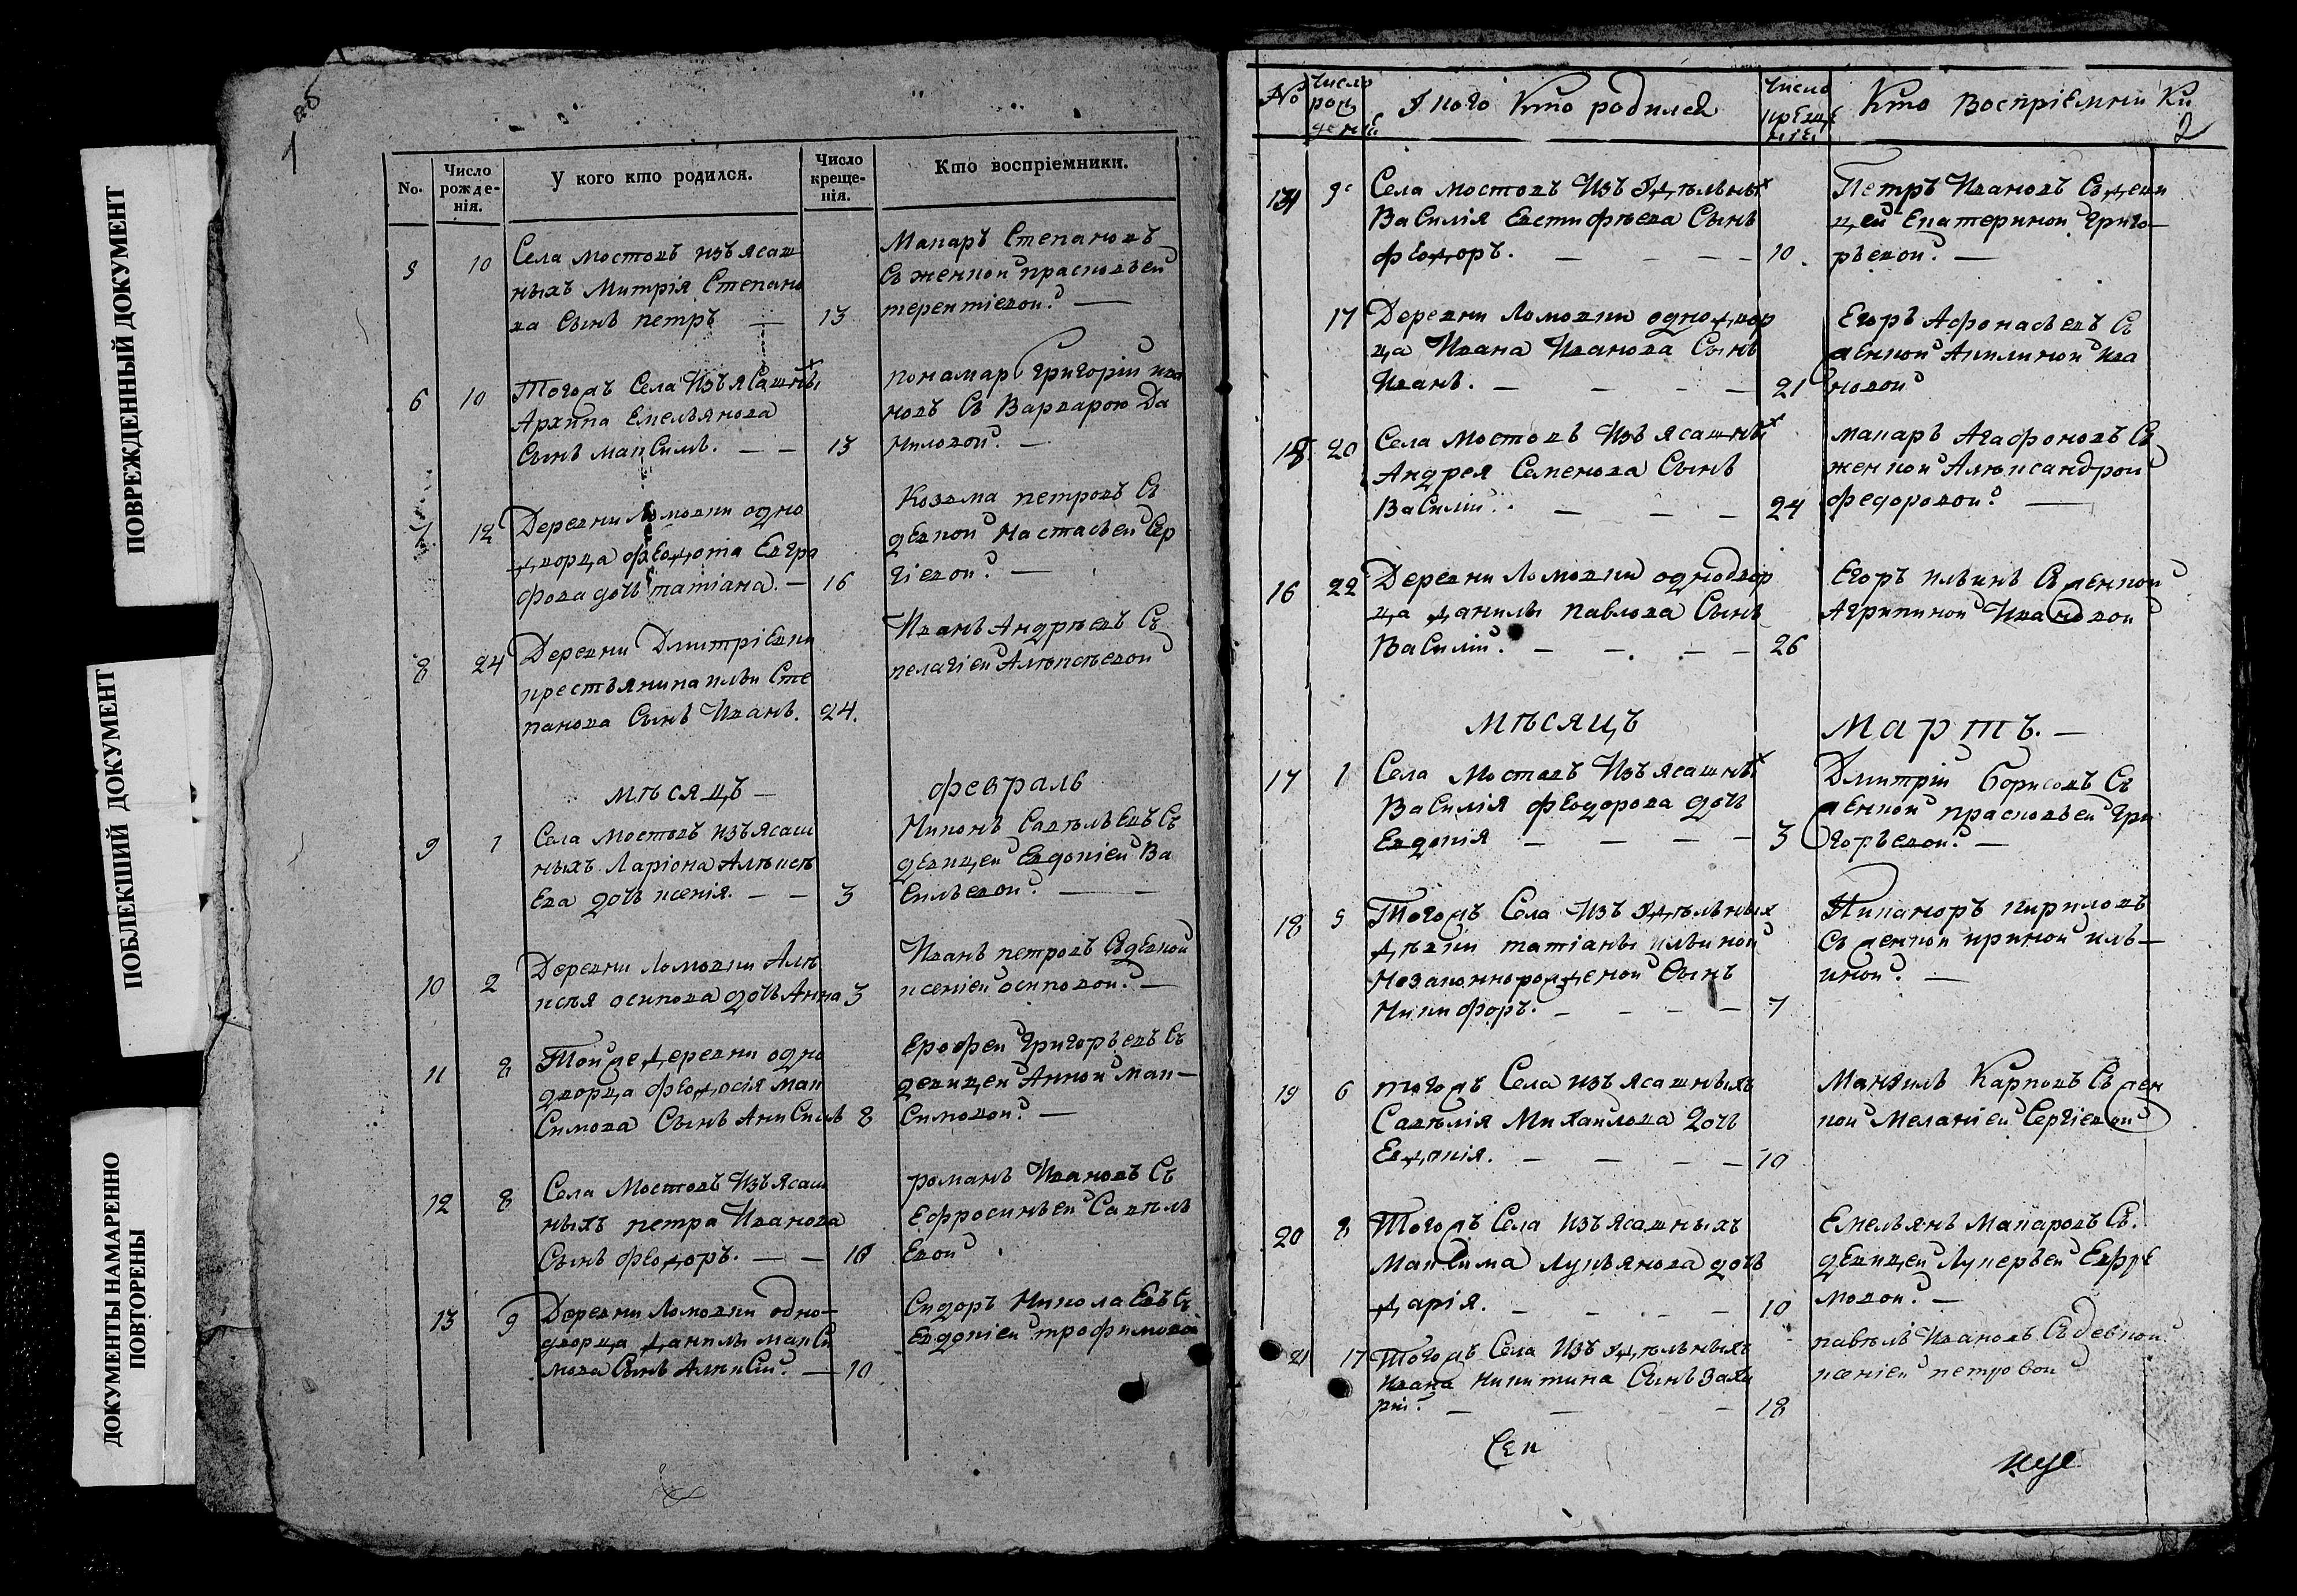 ПОВРЕЖДЕННЫЙ ДОКУМЕНТ
ПОБЛЕКШИЙ ДОКУМЕНТ
ДОКУМЕНТЫ НАМАРЕННО
ПОВТОРЕНЫ
1 об
No. Число рожденія. У кого кто родился. Число крещенія. Кто воспріемники.
5 10 Села мостовъ изъ ясаш
ныхъ Митрія Степано
ва Сынъ петръ — 13
Макаръ Степановъ
Съ женкой прасковьей
терентіевой. —
6 10 Тогожъ Села Изъ ясашныхъ
Архипа Емельянова
Сынъ максимъ. — — 13
пономарь Григорій ива
новъ Съ Варварою Да
ниловой. —
7 12 Деревни Ломовки одно
дворца феодота Евгра
фова дочь татіана. — 16
Козьма петровъ Съ
девкой Настасьей Сер
гіевой. —
8 24 Деревни Дмитріевки
крестьянина ильи Сте
панова Сынъ Иванъ. 24.
Иванъ Андрѣевъ Съ
пелагіей Алѣксѣевой
мѣсяцъ — февраль
9 1 Села мостовъ изъ ясаш
ныхъ Ларіона Алѣксѣ
ева дочь ксенія. — — 3
Никонъ Савѣльевъ Съ
девицей Евдокіей Ва
сильевой. — —
10 2 Деревни Ломовки Алѣ
ксѣя осипова дочь Анна 3
Иванъ петровъ Съ девкой
ксеніей осиповой. —
11 8 Тойже деревни одно
дворца феодосія мак
симова Сынъ АниСимъ 8
Ерофей Григорьевъ Съ
девицей Анной мак—
симовой. —
12 8 Села Мостовъ Изъ ясаш
ныхъ петра Иванова
Сынъ феодоръ. — — 10
романъ Ивановъ Съ
Ефросиньей Савѣль
евой
13 9 Деревни Ломовки одно—
дворца данилы макси
мова Сынъ Алѣксій. — 10
Сидоръ Николаевъ Съ
Евдокіей трофимовой
No Число рожденій У кого Кто родился Число крещеніи Кто Воспріемники
2
14 9 Села мостовъ Изъ Удѣльныхъ
ВаСилія Евстифѣева Сынъ
феодоръ. — — — — 10.
Петръ Ивановъ Съ деви
цей Екатериной Григо—
рьевой. —
17 Деревни Ломовки однодвор
ца Ивана Иванова Сынъ
Иванъ. — — — — 21
Егоръ Афонасьевъ Съ
женкой Акилиной ива
новой
18 20 Села Мостовъ Изъ ясашныхъ
Андрея Семенова Сынъ
ВаСилій. — — — 24
макаръ Агафоновъ Съ
женкой Алѣксандрой
федоровой. —
16 22 Деревни Ломовки однодвор
ца данилы павлова Сынъ
ВаСилій. — — — — 26
Егоръ ильинъ Съ женкой
Агрипиной Ивановой
мѣсяцъ мартъ. —
17 1 Села Мостовъ Изъ ясашныхъ
ВаСилія феодорова дочь
Евдокія — — — — 3
Дмитрій борисовъ Съ
женкой прасковьей Гри
горьевой. —
18 5 Тогожъ Села Изъ Удѣльныхъ
дѣвки татіаны ильиной
Незаконнорожденой Сынъ
Никифоръ. — — — — 7
Никаноръ кириловъ
Съ женкой ириной иль—
иной. —
19 6 тогожъ Села изъ ясашныхъ
Савѣлія Михайлова дочь
Евдокія. — — — — 10
Мануилъ Карповъ Съ жен
кой Меланіей Сергіевой
20 8 Тогожъ Села Изъ ясашныхъ
Максима Лукьянова дочь
дарія. — — — — 10
Емельянъ макаровъ Съ
девицей Лукерьей Евфрѣ
мовой. —
21 17 Тогожъ Села Изъ Удѣльныхъ
Ивана никитина Сынъ Заха
рій. — — — 18
павѣлъ Ивановъ Съ девкой
ксеніей петровой